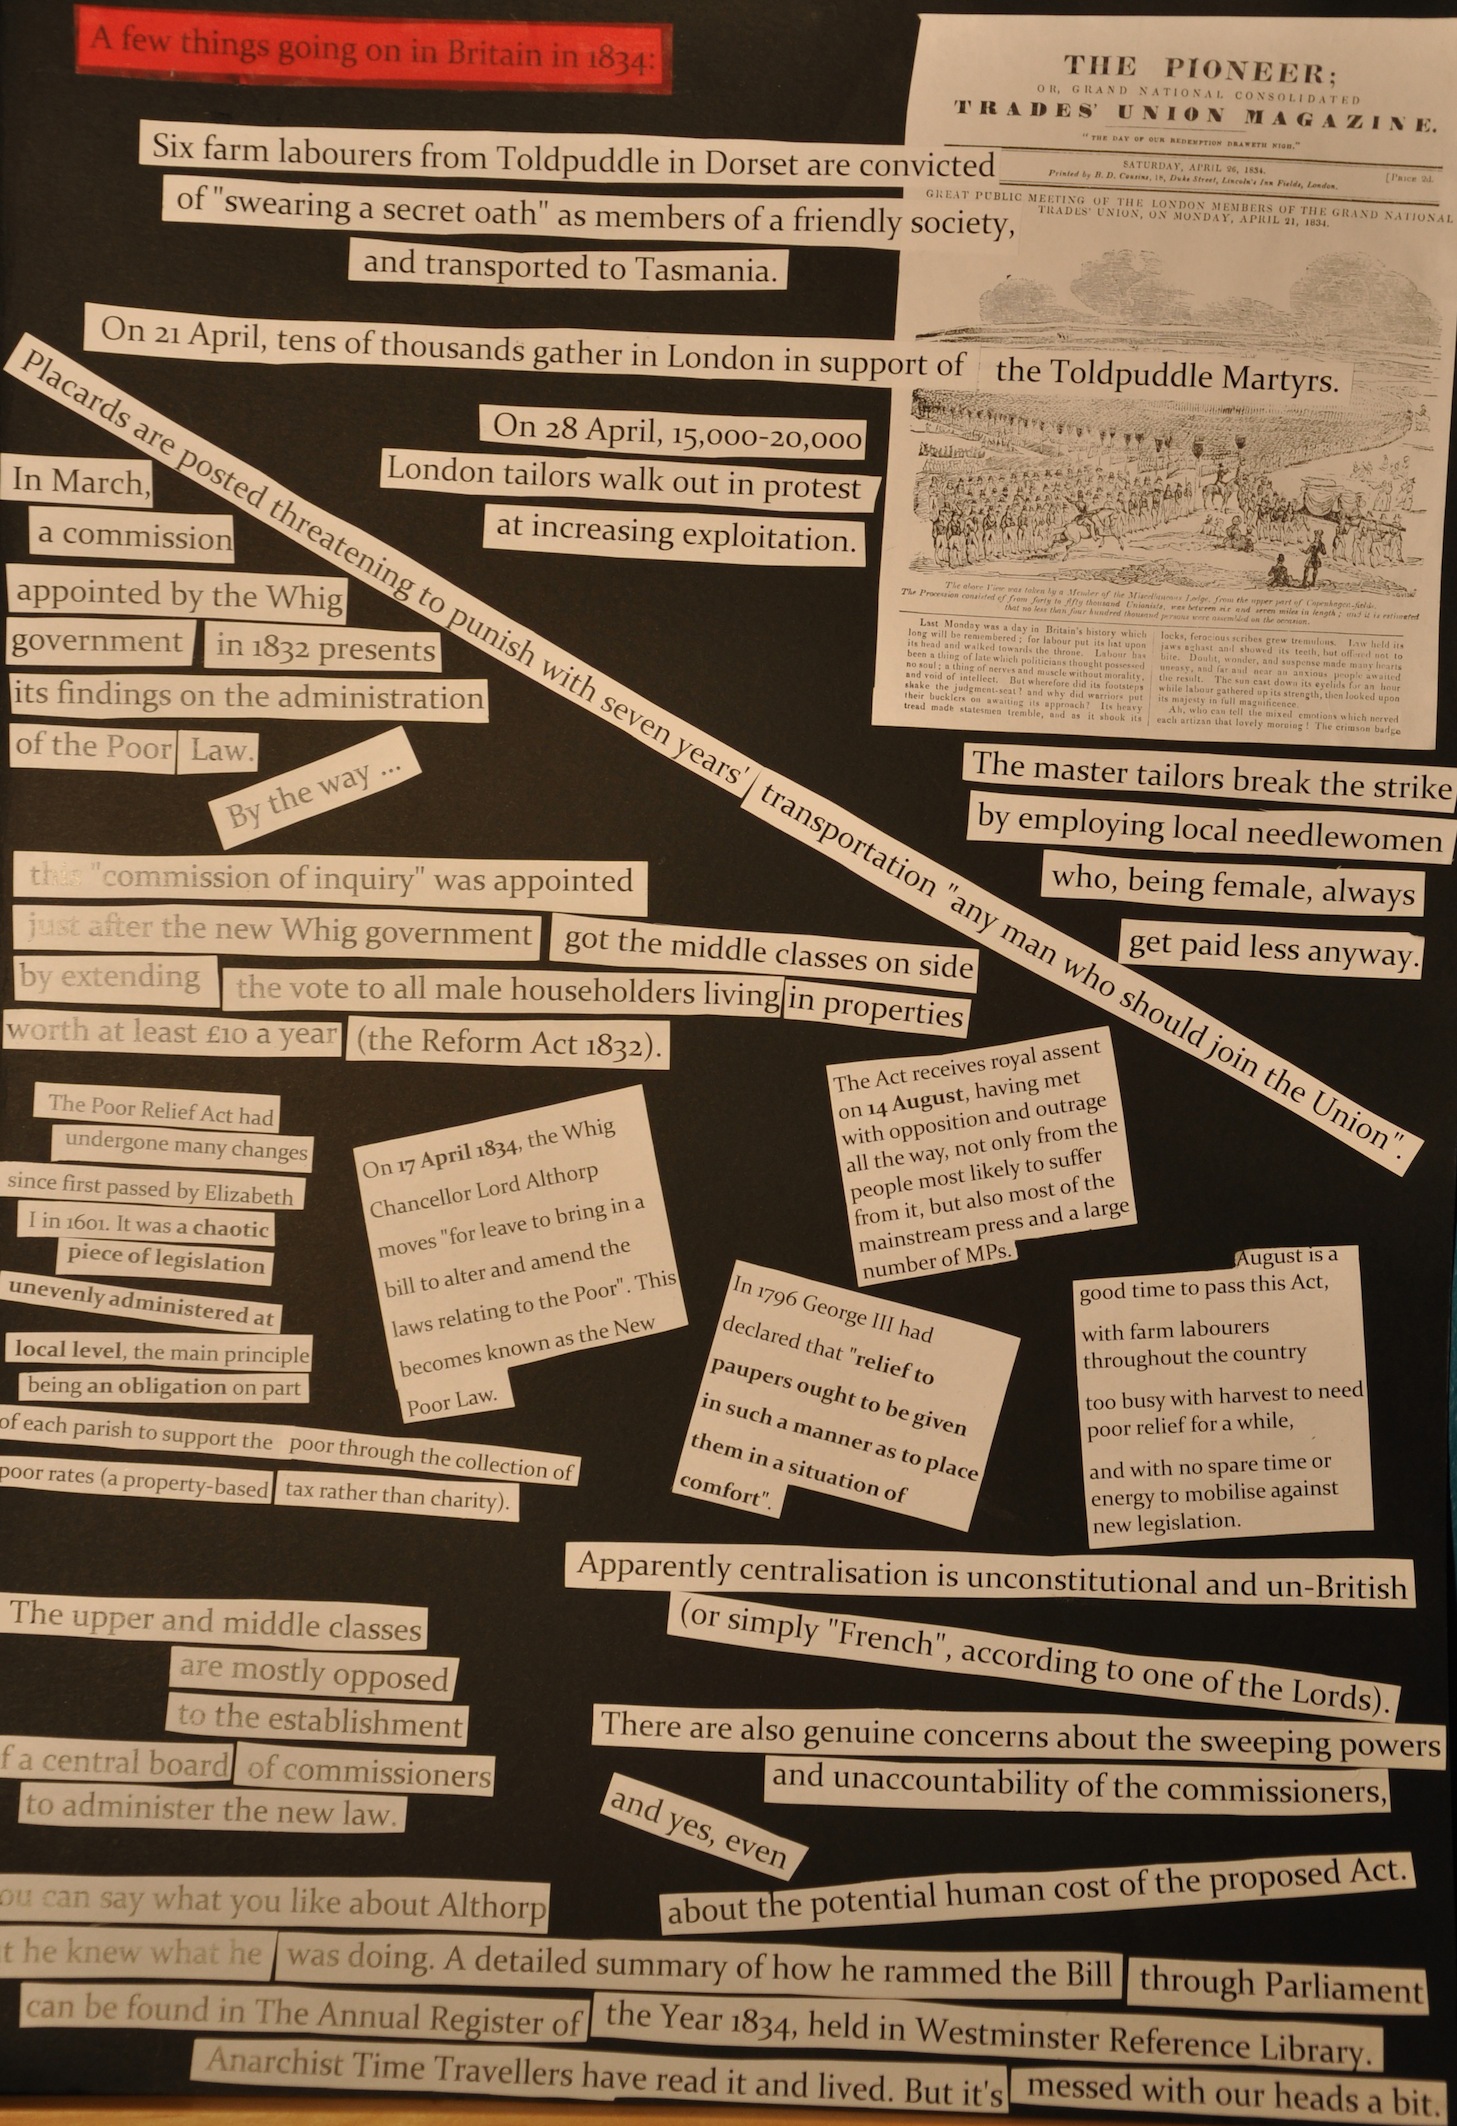 A few things going on in Britain in 1834:
THE PIONEER;
OR, GRAND NATIONAL CONSOLIDATED
TRADES' UNION MAGAZINE.
"THE DAY OF OUR REDEMPTION DRAWETH NIGH."
SATURDAY, APRIL 26, 1834.
Printed by B. D. Cousins, 18, Duke Street, Lincoln's Inn Fields, London.
[Price 2d.
GREAT PUBLIC MEETING OF THE LONDON MEMBERS OF THE GRAND NATIONAL
TRADES' UNION, ON MONDAY, APRIL 21, 1834.
Six farm labourers from Toldpuddle in Dorset are convicted
of "swearing a secret oath" as members of a friendly society,
and transported to Tasmania.
On 21 April, tens of thousands gather in London in support of the Toldpuddle Martyrs.
Placards are posted threatening to punish with seven years' transportation "any man who should join the Union".
On 28 April, 15,000-20,000
London tailors walk out in protest
at increasing exploitation.
The above View was taken by a Member of the Miscellaneous Lodge, from the upper part of Copenhagen-fields.
The Procession consisted of from forty to fifty thousand Unionists, was between six and seven miles in length; and it is estimated
that no less than four hundred thousand persons were assembled on the occasion.
Last Monday was a day in Britain's history which
long will be remembered; for labour put its hat upon
its head and walked towards the throne. Labour has
been a thing of late which politicians thought possessed
no soul; a thing of nerves and muscle without morality,
and void of intellect. But wherefore did its footsteps
shake the judgment-seat? and why did warriors put
their bucklers on awaiting its approach? Its heavy
tread made statesmen tremble, and as it shook its
locks, ferocious scribes grew tremulous. Law held its
jaws aghast and showed its teeth, but offered not to
bite. Doubt, wonder, and suspense made many hearts
uneasy, and far and near an anxious people awaited
the result. The sun cast down its eyelids for an hour
while labour gathered up its strength, then looked upon
its majesty in full magnificence.
Ah, who can tell the mixed emotions which nerved
each artizan that lovely morning! The crimson badge
In March,
a commission
appointed by the Whig
government in 1832 presents
its findings on the administration
of the Poor Law.
By the way ...
this "commission of inquiry" was appointed
just after the new Whig government got the middle classes on side
by extending the vote to all male householders living in properties
worth at least £10 a year (the Reform Act 1832).
The master tailors break the strike
by employing local needlewomen
who, being female, always
get paid less anyway.
The Poor Relief Act had
undergone many changes
since first passed by Elizabeth
I in 1601. It was a chaotic
piece of legislation
unevenly administered at
local level, the main principle
being an obligation on part
of each parish to support the poor through the collection of
poor rates (a property-based tax rather than charity).
On 17 April 1834, the Whig
Chancellor Lord Althorp
moves "for leave to bring in a
bill to alter and amend the
laws relating to the Poor". This
becomes known as the New
Poor Law.
The Act receives royal assent
on 14 August, having met
with opposition and outrage
all the way, not only from the
people most likely to suffer
from it, but also most of the
mainstream press and a large
number of MPs.
In 1796 George III had
declared that "relief to
paupers ought to be given
in such a manner as to place
them in a situation of
comfort".
August is a
good time to pass this Act,
with farm labourers
throughout the country
too busy with harvest to need
poor relief for a while,
and with no spare time or
energy to mobilise against
new legislation.
The upper and middle classes
are mostly opposed
to the establishment
f a central board of commissioners
to administer the new law.
Apparently centralisation is unconstitutional and un-British
(or simply "French", according to one of the Lords).
There are also genuine concerns about the sweeping powers
and unaccountability of the commissioners,
and yes, even
about the potential human cost of the proposed Act.
ou can say what you like about Althorp
t he knew what he was doing. A detailed summary of how he rammed the Bill through Parliament
can be found in The Annual Register of the Year 1834, held in Westminster Reference Library.
Anarchist Time Travellers have read it and lived. But it's messed with our heads a bit.